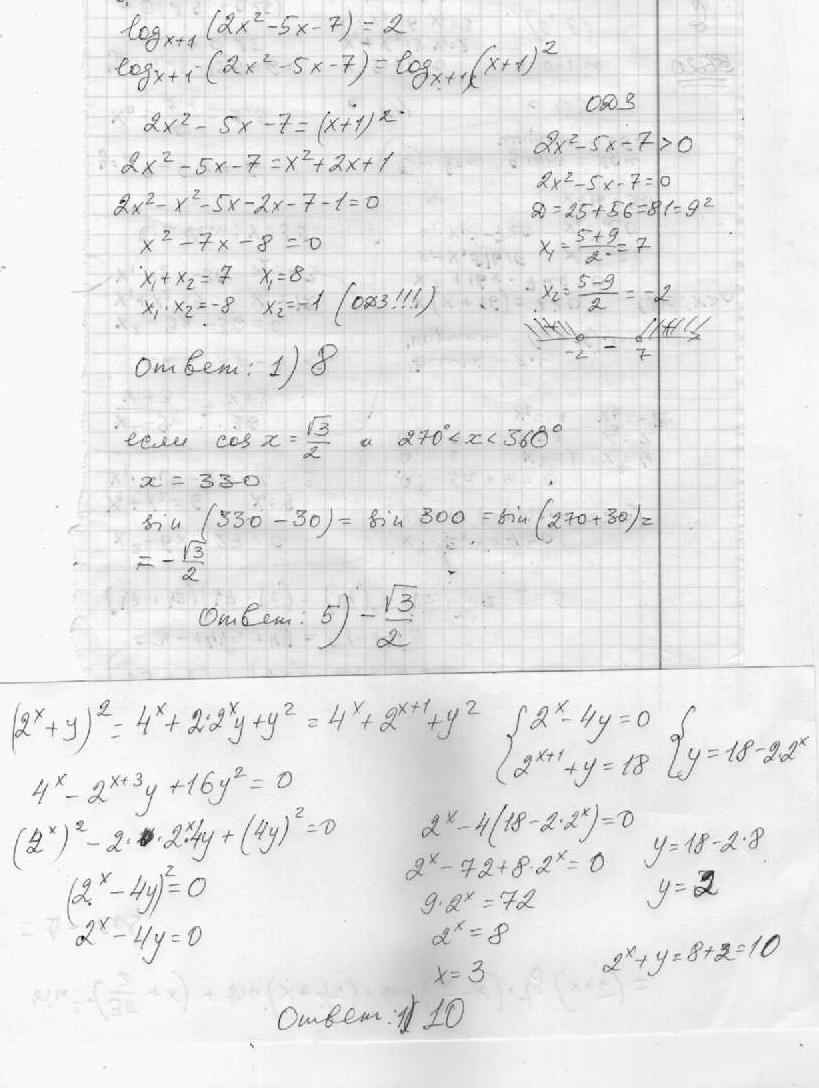 log_{x+1} (2x²-5x-7) = 2
log_{x+1} (2x²-5x-7) = log_{x+1} (x+1)²
2x² - 5x - 7 = (x+1)²
2x² - 5x - 7 = x² + 2x + 1
2x² - x² - 5x - 2x - 7 - 1 = 0
x² - 7x - 8 = 0
x₁ + x₂ = 7 x₁ = 8
x₁ · x₂ = -8 x₂ = -1 (ОДЗ!!!)
ОДЗ
2x² - 5x - 7 > 0
2x² - 5x - 7 = 0
D = 25 + 56 = 81 = 9²
x₁ = (5+9)/2 = 7
x₂ = (5-9)/2 = -2
+ - +
-2 7
Ответ: 1) 8
если cos x = √3/2 и 270° < x < 360°
x = 330
sin (330 - 30) = sin 300 = sin (270 + 30) =
= -√3/2
Ответ: 5) -√3/2
(2^x + y)² = 4^x + 2·2^x y + y² = 4^x + 2^{x+1} + y²
4^x - 2^{x+3} y + 16y² = 0
(2^x)² - 2 · 2^x 4y + (4y)² = 0
(2^x - 4y)² = 0
2^x - 4y = 0
{ 2^x - 4y = 0
2^{x+1} + y = 18
{ y = 18 - 2·2^x
2^x - 4(18 - 2·2^x) = 0
2^x - 72 + 8·2^x = 0
9·2^x = 72
2^x = 8
x = 3
y = 18 - 2·8
y = 2
2^x + y = 8 + 2 = 10
Ответ: 1) 10